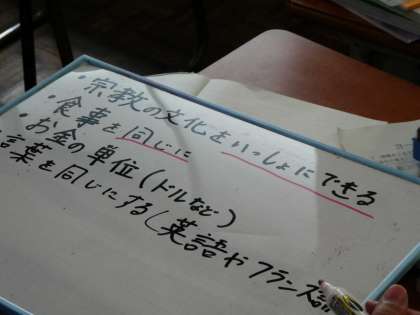 ・宗教の文化をいっしょにできる
・食事を同じに
・お金の単位(ドルなど)
言葉を同じにする(英語やフランス語